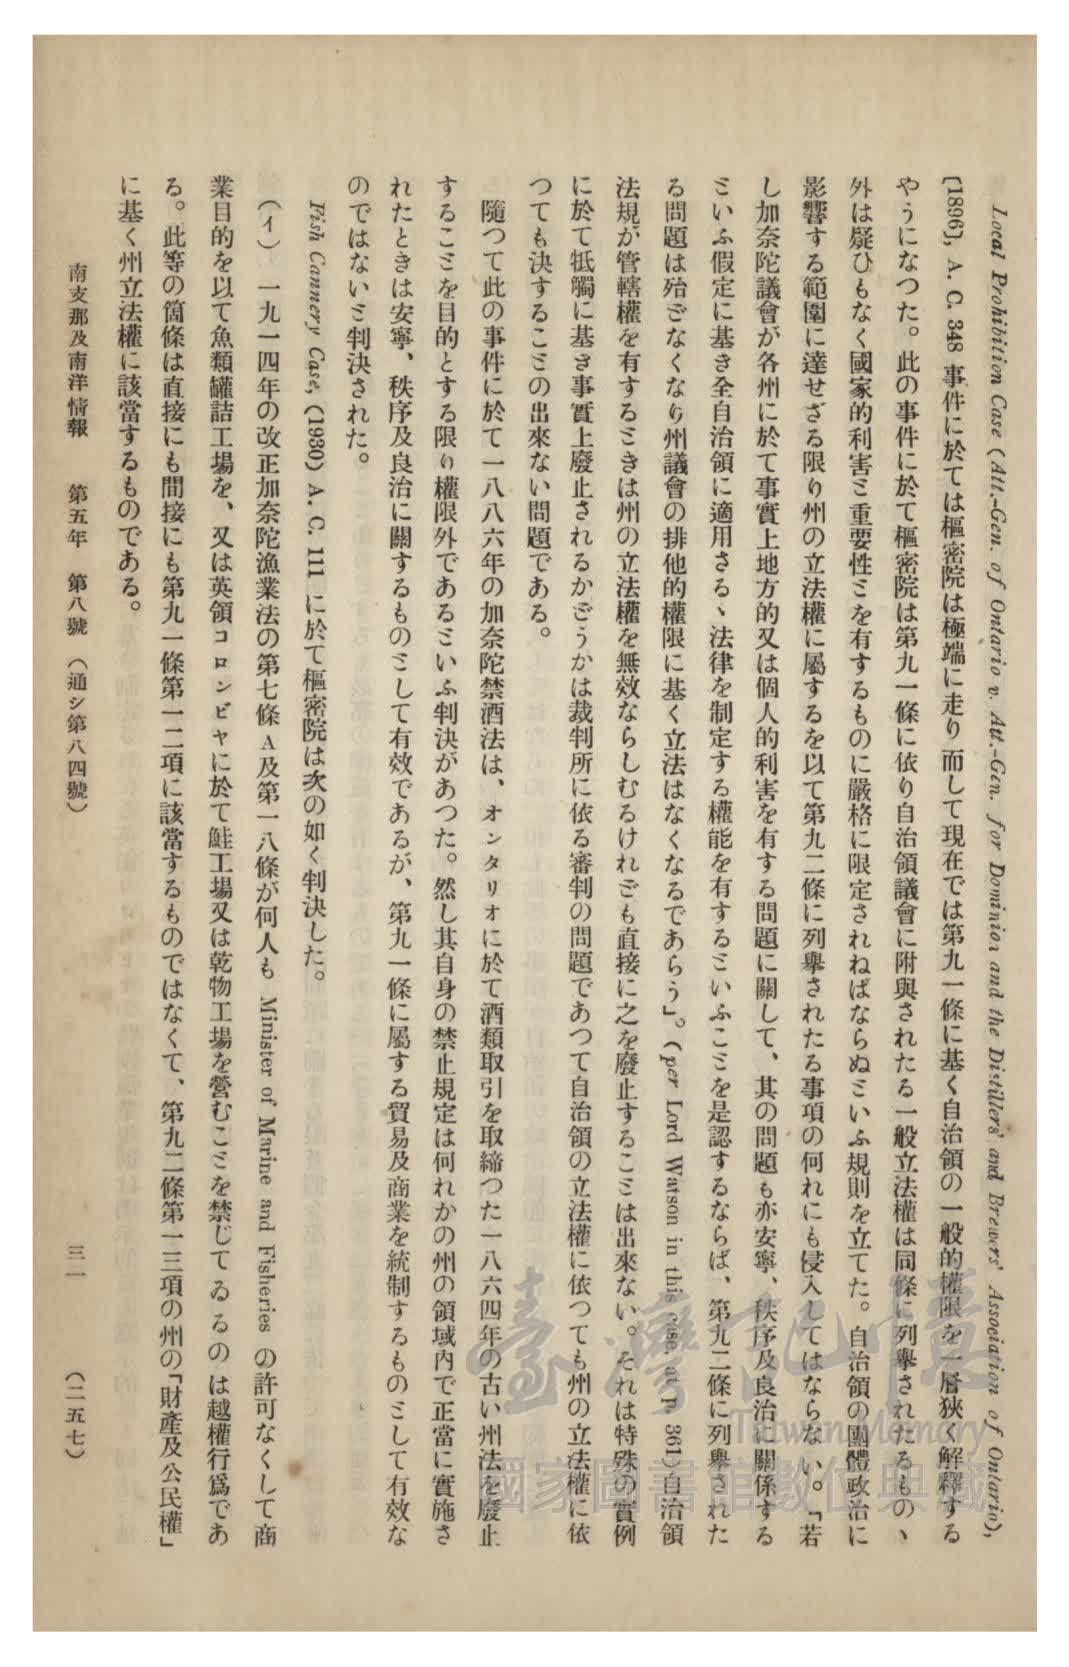 Local Prohibition Case (Att.-Gen. of Ontario v. Att.-Gen. for Dominion and the Distillers' and Brewers' Association of Ontario),
〔1896〕, A. C. 348 事件に於ては樞密院は極端に走り而して現在では第九一條に基く自治領の一般的權限を一層狹く解釋する
やうになつた。此の事件に於て樞密院は第九一條に依り自治領議會に附與されたる一般立法權は同條に列擧されたるもの丶
外は疑ひもなく國家的利害ミ重要性ミを有するものに嚴格に限定されねばならぬミいふ規則を立てた。自治領の團體政治に
影響する範圍に達せざる限り州の立法權に屬するを以て第九二條に列擧されたる事項の何れにも侵入してはならない。「若
し加奈陀議會が各州に於て事實上地方的又は個人的利害を有する問題に關して、其の問題も亦安寧、秩序及良治に關係する
ミいふ假定に基き全自治領に適用さる丶法律を制定する權能を有するミいふこミを是認するならば、第九二條に列擧された
る問題は殆ごなくなり州議會の排他的權限に基く立法はなくなるであらう」。(per Lord Watson in this case, at P. 361)自治領
法規が管轄權を有するミきは州の立法權を無效ならしむるけれごも直接に之を廢止するこミは出來ない。それは特殊の實例
に於て牴觸に基き事實上廢止されるかごうかは裁判所に依る審判の問題であつて自治領の立法權に依つても州の立法權に依
つても決するこミの出來ない問題である。
隨つて此の事件に於て一八八六年の加奈陀禁酒法は、オンタリオに於て酒類取引を取締つた一八六四年の古い州法を廢止
するこミを目的とする限り權限外であるミいふ判決があつた。然し其自身の禁止規定は何れかの州の領域內で正當に實施さ
れたときは安寧、秩序及良治に關するものミして有效であるが、第九一條に屬する貿易及商業を統制するものミして有效な
のではないミ判決された。
Fish Cannery Case, (1930) A. C. 111 に於て樞密院は次の如く判決した。
(イ) 一九一四年の改正加奈陀漁業法の第七條A及第一八條が何人も Minister of Marine and Fisheries の許可なくして商
業目的を以て魚類罐詰工場を、又は英領コロンビヤに於て鮭工場又は乾物工場を營むこミを禁じてゐるのは越權行爲であ
る。此等の箇條は直接にも間接にも第九一條第一二項に該當するものではなくて、第九二條第一三項の州の「財產及公民權」
に基く州立法權に該當するものである。
南支那及南洋情報 第五年 第八號 (通シ第八四號) 三一 (二五七)
臺灣記憶
Taiwan Memory
國家圖書館數位典藏